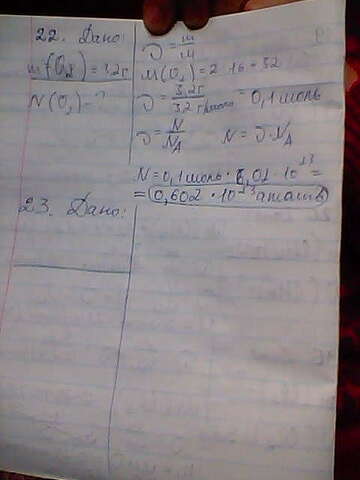 22. Дано:
m(O₂) = 3,2г
N(O₂) = ?
ν = m/M
M(O₂) = 2 · 16 = 32
ν = 3,2г / 32 г/моль = 0,1 моль
ν = N/Nₐ N = ν · Nₐ
N = 0,1 моль · 6,02 · 10²³ =
= 0,602 · 10²³ атомов
23. Дано: